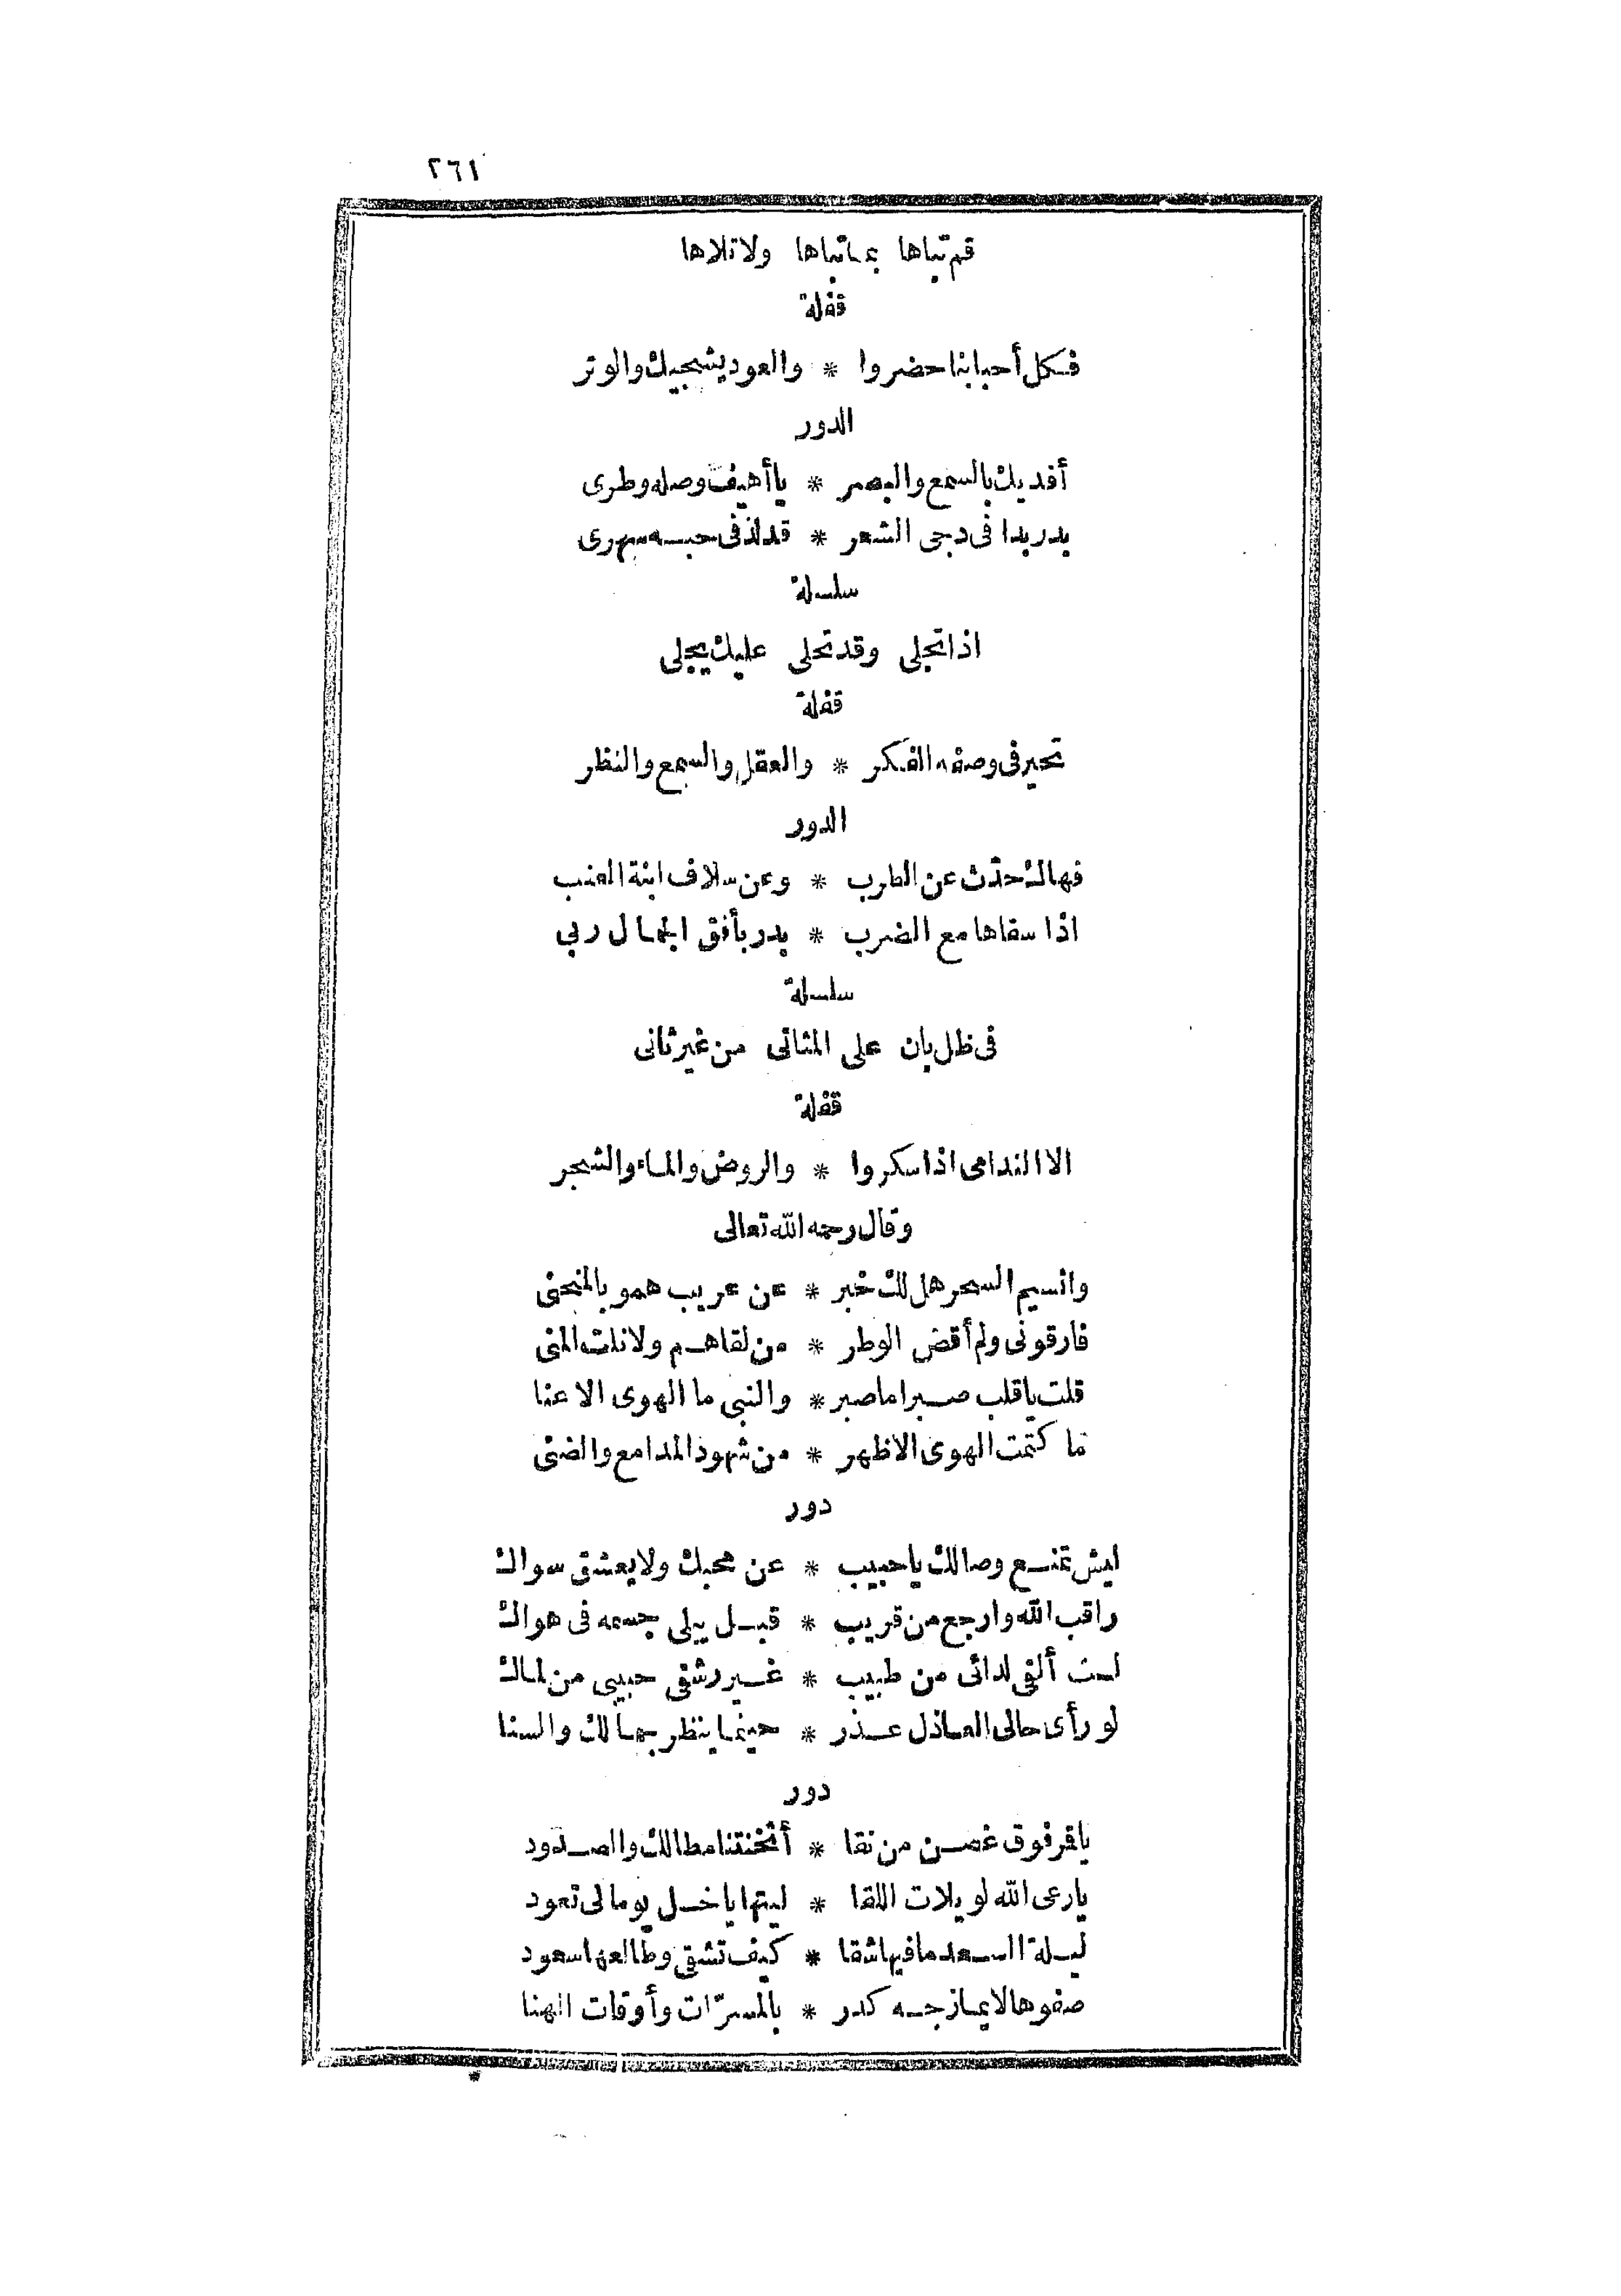 ٢٦١
قم تباها بماتباها ولاتلاها
قفلة
فكل أحبابنا حضروا * والعود يشجيك والوتر
الدور
أفديك بالسمع والبصر * يا أهيف وصله وطرى
بدر بدا فى دجى الشعر * قد لذ فى حبه سهرى
سلسلة
اذا تجلى وقد تحلى عليك يجلى
قفلة
تحير فى وصفه الفكر * والعقل والسمع والنظر
الدور
فهاك حدّث عن الطرب * وعن سلاف ابنة العنب
اذا سقاها مع الضرب * بدر بأفق الجمال ربي
سلسلة
فى ظل بان على المثانى من غير ثانى
قفلة
الا الندامى اذا سكروا * والروض والماء والشجر
وقال رحمه الله تعالى
وانسيم السحر هل لك خبر * عن عريب همو بالمنحنى
فارقونى ولم أقض الوطر * من لقاهم ولا نلت المنى
قلت ياقلب صبرا ما صبر * والنبى ما الهوى الا عنا
ما كتمت الهوى الا ظهر * من شهود المدامع والضنى
دور
ليش تمنع وصالك ياحبيب * عن محبك ولا يعشق سواك
راقب الله وارجع من قريب * قبل يبلى جسمه فى هواك
لست ألقى لدائى من طبيب * غير رشفى حبيبى من لماك
لو رأى حالى العاذل عذر * حينما ينظر جمالك والسنا
دور
ياقمر فوق غصن من نقا * أثخنتنا مطالك والصدود
يارعى الله لويلات اللقا * ليتها ياخل يوما لى تعود
ليلة السعد ما فيها شقا * كيف تشقى وطالعها سعود
صفوها لا يمازجه كدر * بالمسرّات وأوقات الهنا